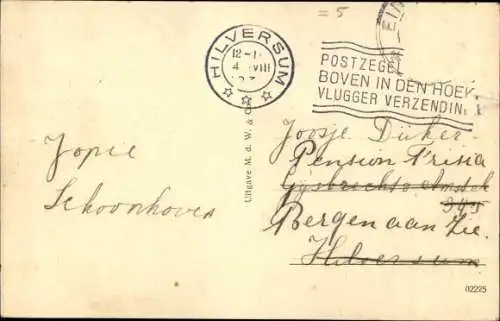 = 5
HILVERSUM
12-1
4 VIII
POSTZEGEL
BOVEN IN DEN HOEK
VLUGGER VERZENDIN
Jopie
Schoonhoven
Uitgave M. d. W. & C
Joosje Duker
Pension Frisia
Gysbrecht v. Amstel
345
Bergen aan Zee.
Hilversum
02225